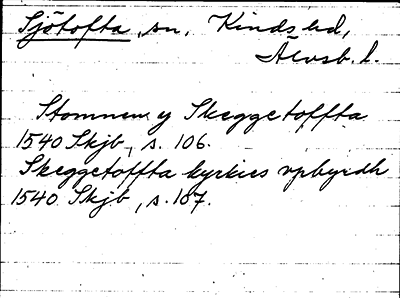 Sjötofta, sn, Kinds hd,
Älvsb. l.
Stommen y Skeggetoffta
1540 Skjb, s. 106.
Skeggetoffta kyrkies vpbyrdh
1540 Skjb, s. 107.